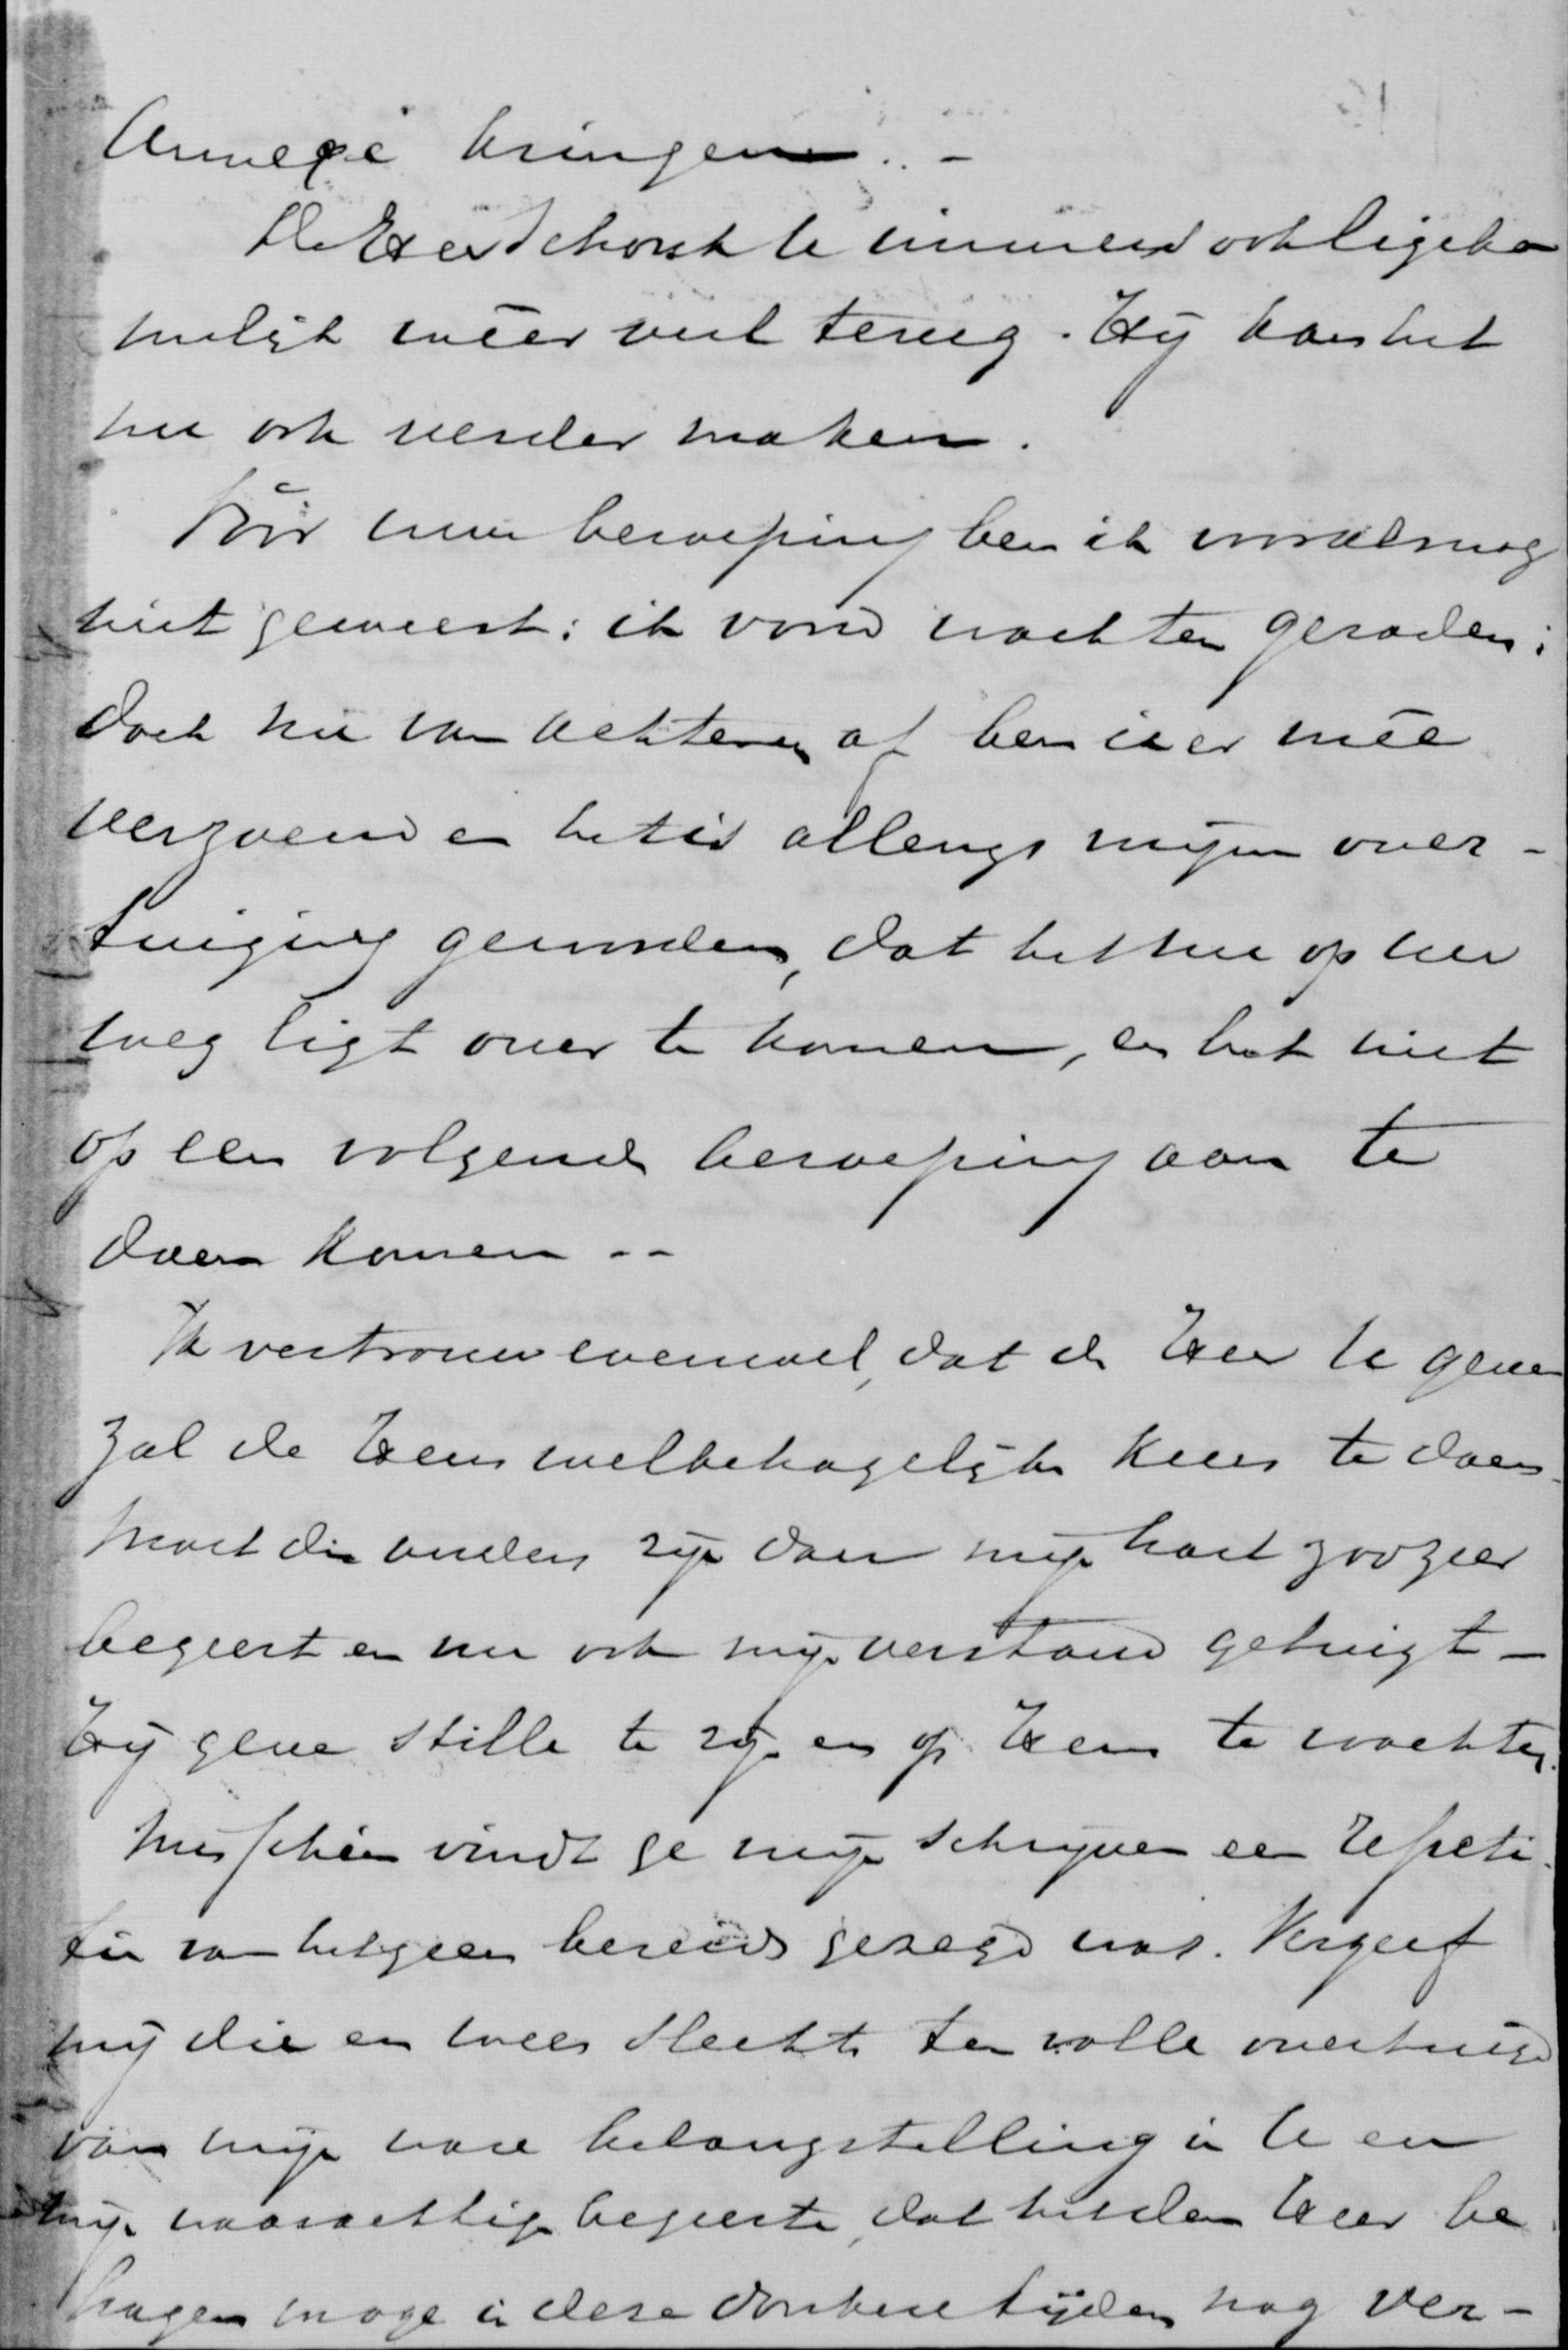 Annexe kringen. -
De Heer schonk U immers ook ligcha
melijk weer veel terug. Hij kan het
nu ook verder maken.
Vóór uw beroeping ben ik vooralsnog
niet geweest: ik vond wachten geraden;
doch nu van achteren af ben ik er meê
verzoend en het is allengs mijne over-
tuiging geworden, dat het nu op uw
weg ligt over te komen, en het niet
op een volgende beroeping aan te
doen komen --
Ik vertrouw evenwel, dat de Heer U geven
zal de Hem welbehagelijke keus te doen.
Moet die anders zijn dan mijn hart zoozeer
begeert en nu ook mijn verstand getuigt -
Hij geve stille te zijn en op Hem te wachten.
Misschien vindt ge mijn schrijven een repeti-
tie van hetgeen bereids gezegd was. Vergeef
mij die en wees slechts ten volle overtuigd
van mijn ware belangstelling in U en
mijn waarachtige begeerte, dat het den Heer be
hagen moge in deze donkere tijden nog ver-